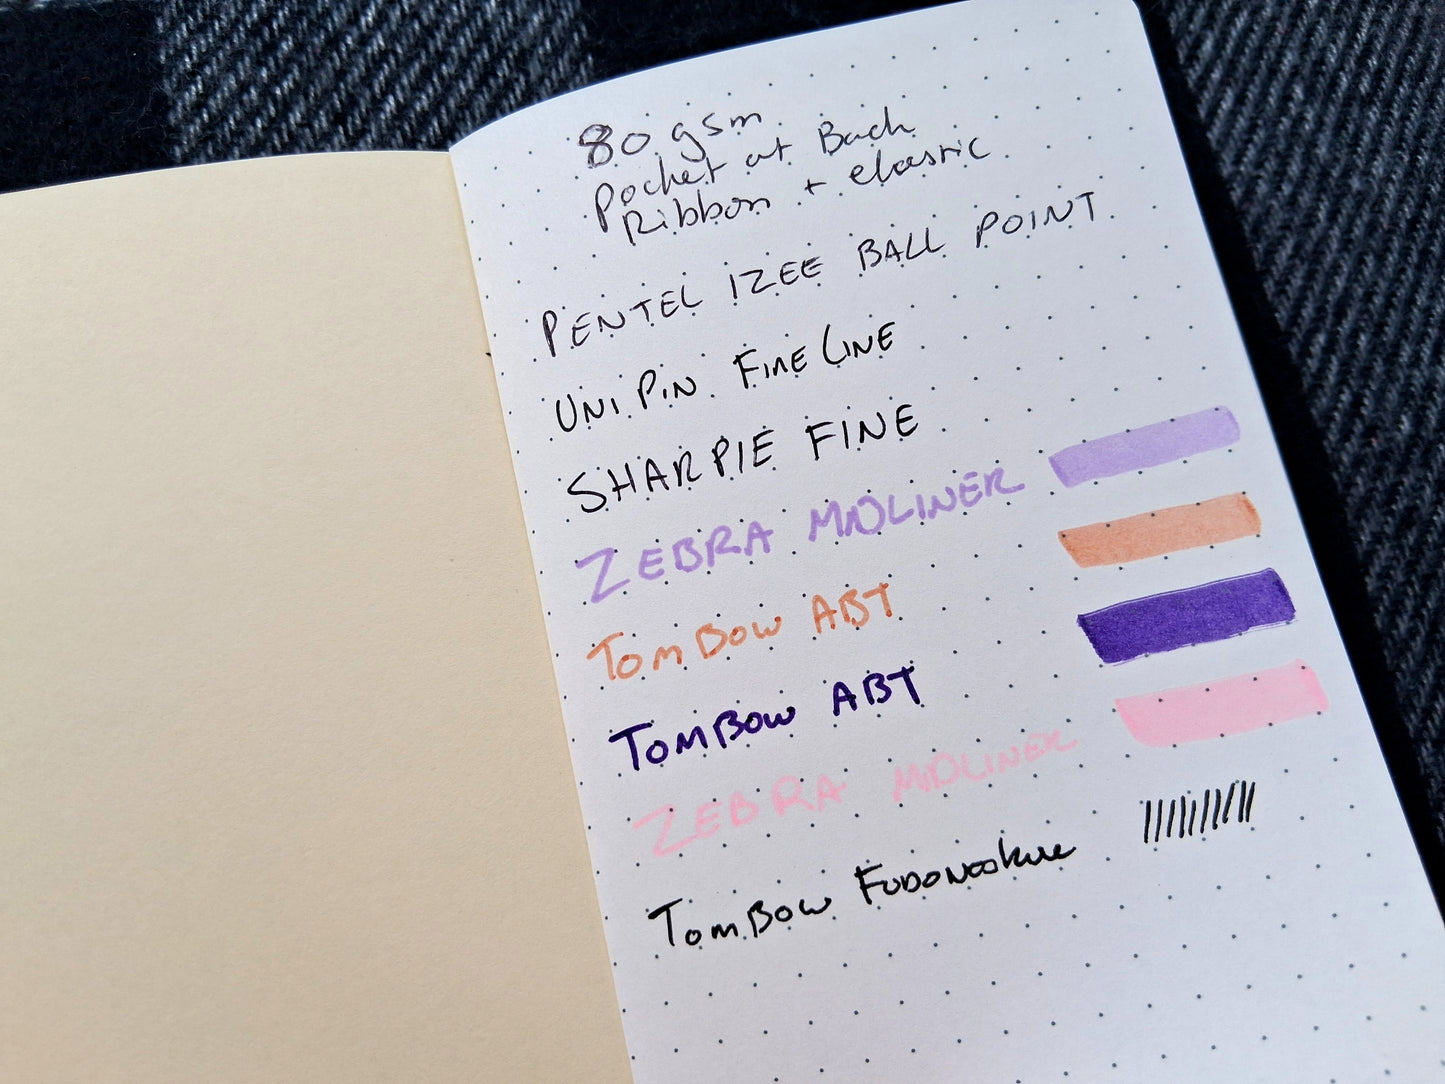 80 gsm
Pocket at Back
Ribbon + elastic
PENTEL IZEE BALL POINT
UNI PIN FINE LINE
SHARPIE FINE
ZEBRA MIDLINER
TOMBOW ABT
TOMBOW ABT
ZEBRA MIDLINER
TOMBOW